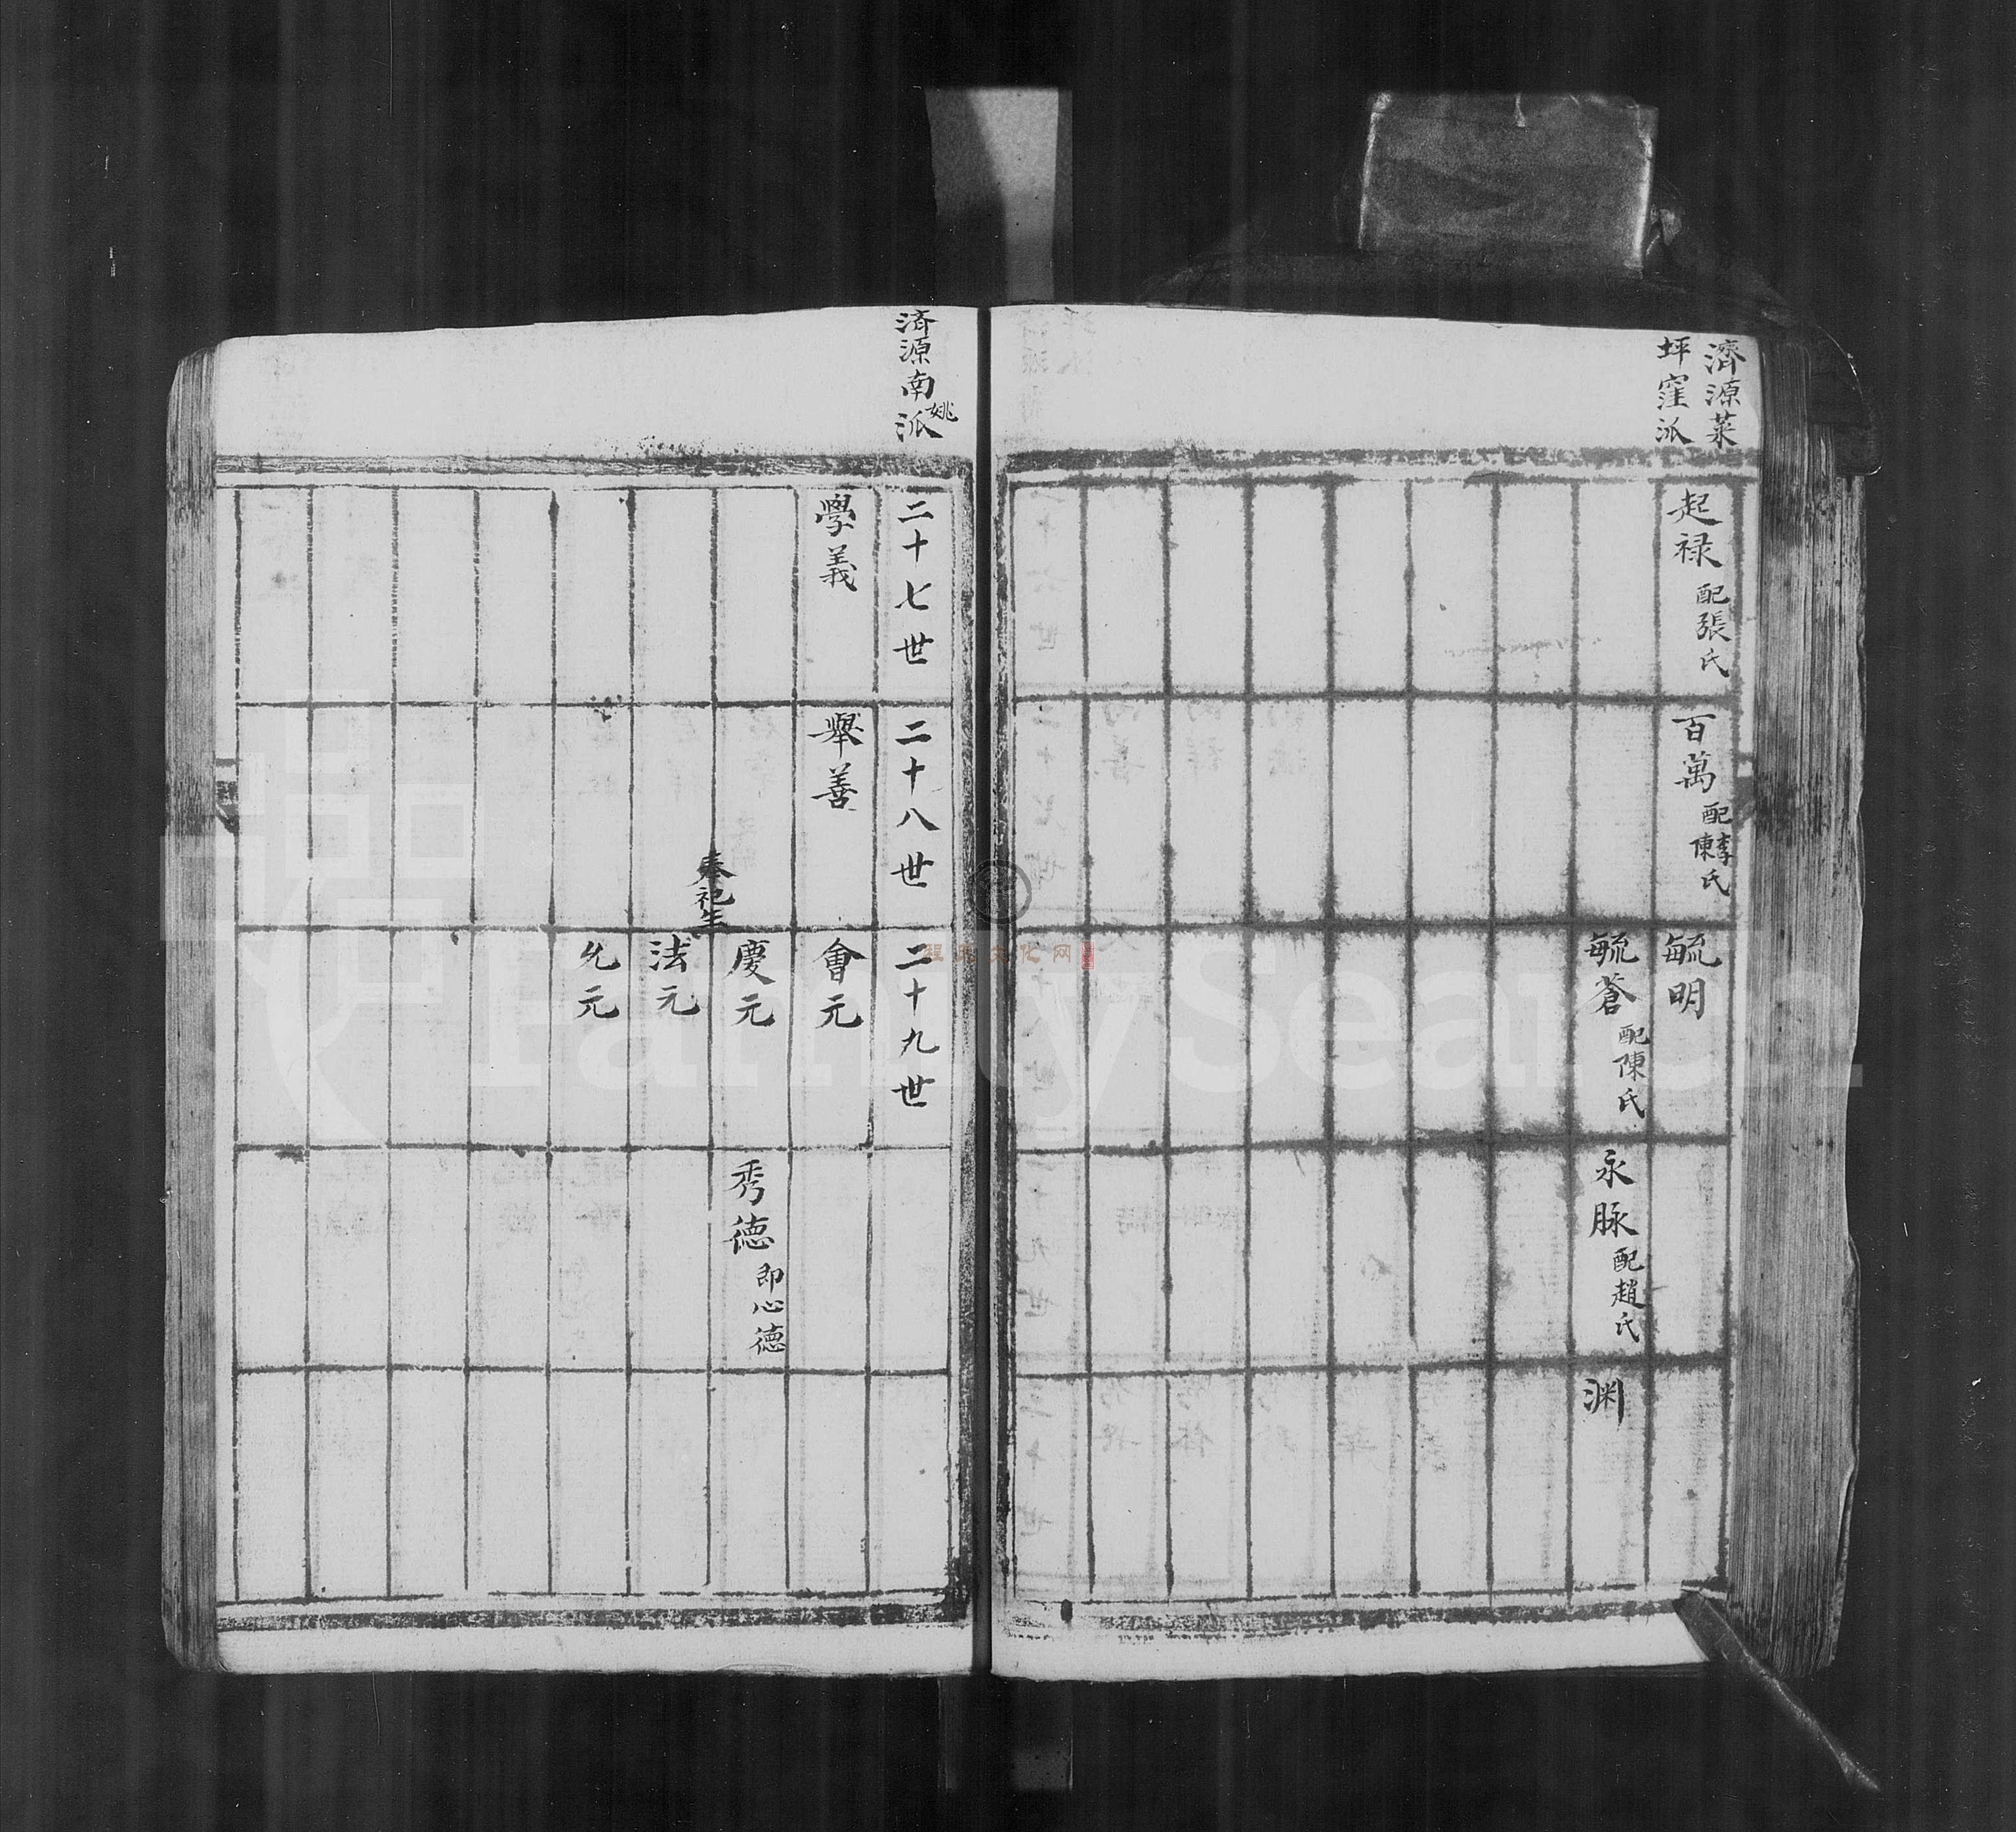 濟源菜
坪窪派
起禄 配張氏
百萬 配陳李氏
毓明
毓蒼 配陳氏
永脉 配趙氏
渊
済源南姚派
二十七世
學義
二十八世
舉善
二十九世
會元
奉祀生
慶元
法元
允元
秀德 即心德
FamilySearch
程氏文化网